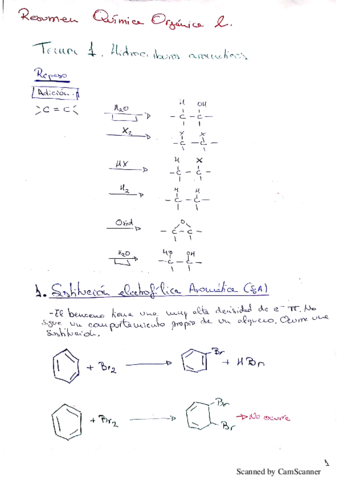 Resumen Química Orgánica 2.
Tema 1. Hidrocarburos aromáticos
Repaso
Adición.
C = C
H2O
H OH
- C - C -
X2
X X
- C - C -
HX
H X
- C - C -
H2
H H
- C - C -
Oxid
O
- C - C -
H2O
HO OH
- C - C -
1. Sustitución electrofílica Aromática (SEA)
- El benceno tiene una muy alta densidad de e- π. No
sigue un comportamiento propio de un alqueno. Ocurre una
sustitución.
+ Br2
Br
+ HBr
+ Br2
Br
Br
→ No ocurre
1
Scanned by CamScanner